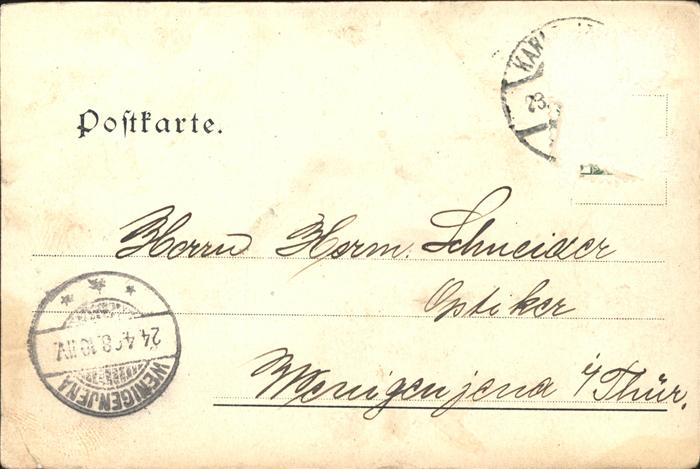 Postkarte.
23.
Herrn Herm. Schneider
Optiker
Wenigenjena i/Thür.
WENIGENJENA